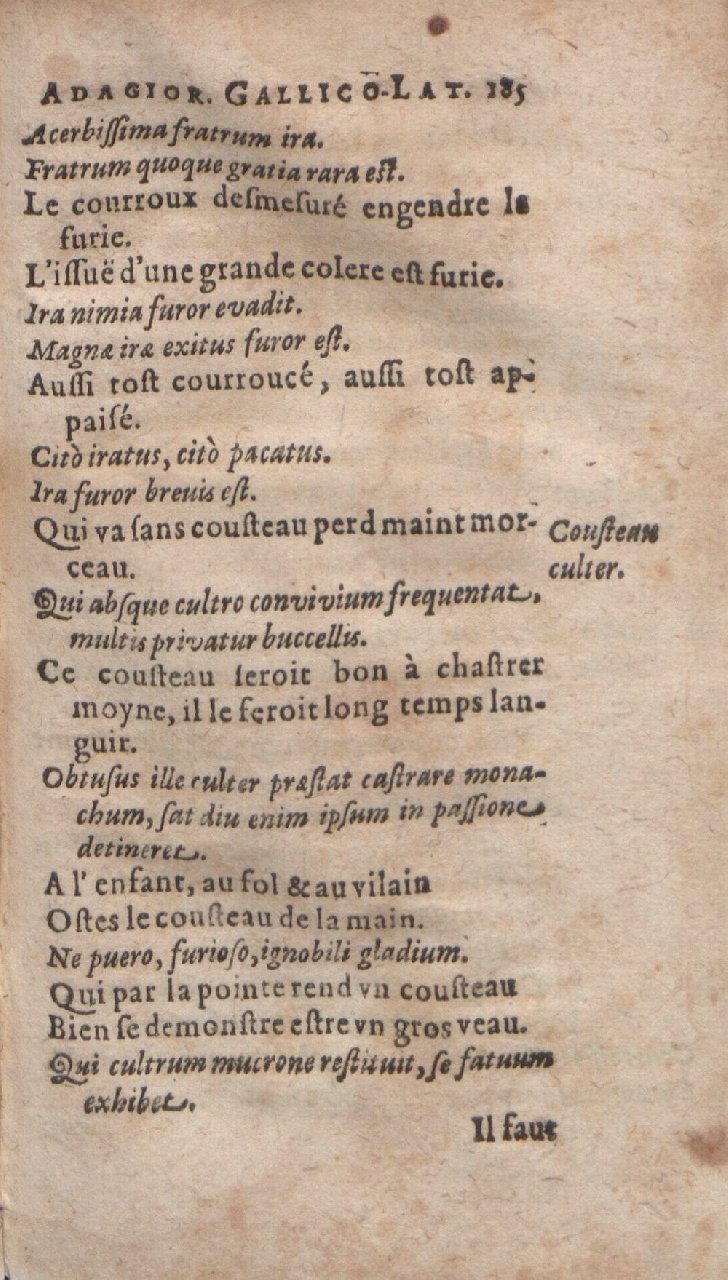 ADAGIOR. GALLICŌ-LAT. 185
Acerbiſſima fratrum ira.
Fratrum quoque gratia rara eſt.
Le courroux deſmeſuré engendre la
furie.
L'iſſuë d'une grande colere eſt furie.
Ira nimia furor evadit.
Magnæ iræ exitus furor eſt.
Auſſi toſt courroucé, auſſi toſt ap-
paiſé.
Citò iratus, citò pacatus.
Ira furor brevis eſt.
Qui va ſans couſteau perd maint mor-
ceau.
Couſteau
culter.
Qui abſque cultro convivium frequentat,
multis privatur buccellis.
Ce couſteau ſeroit bon à chaſtrer
moyne, il le feroit long temps lan-
guir.
Obtuſus ille culter præſtat caſtrare mona-
chum, ſat diu enim ipſum in paſſione
detineret.
A l' enfant, au fol & au vilain
Oſtes le couſteau de la main.
Ne puero, furioſo, ignobili gladium.
Qui par la pointe rend vn couſteau
Bien ſe demonſtre eſtre vn gros veau.
Qui cultrum mucrone reſtituit, ſe fatuum
exhibet.
Il faut